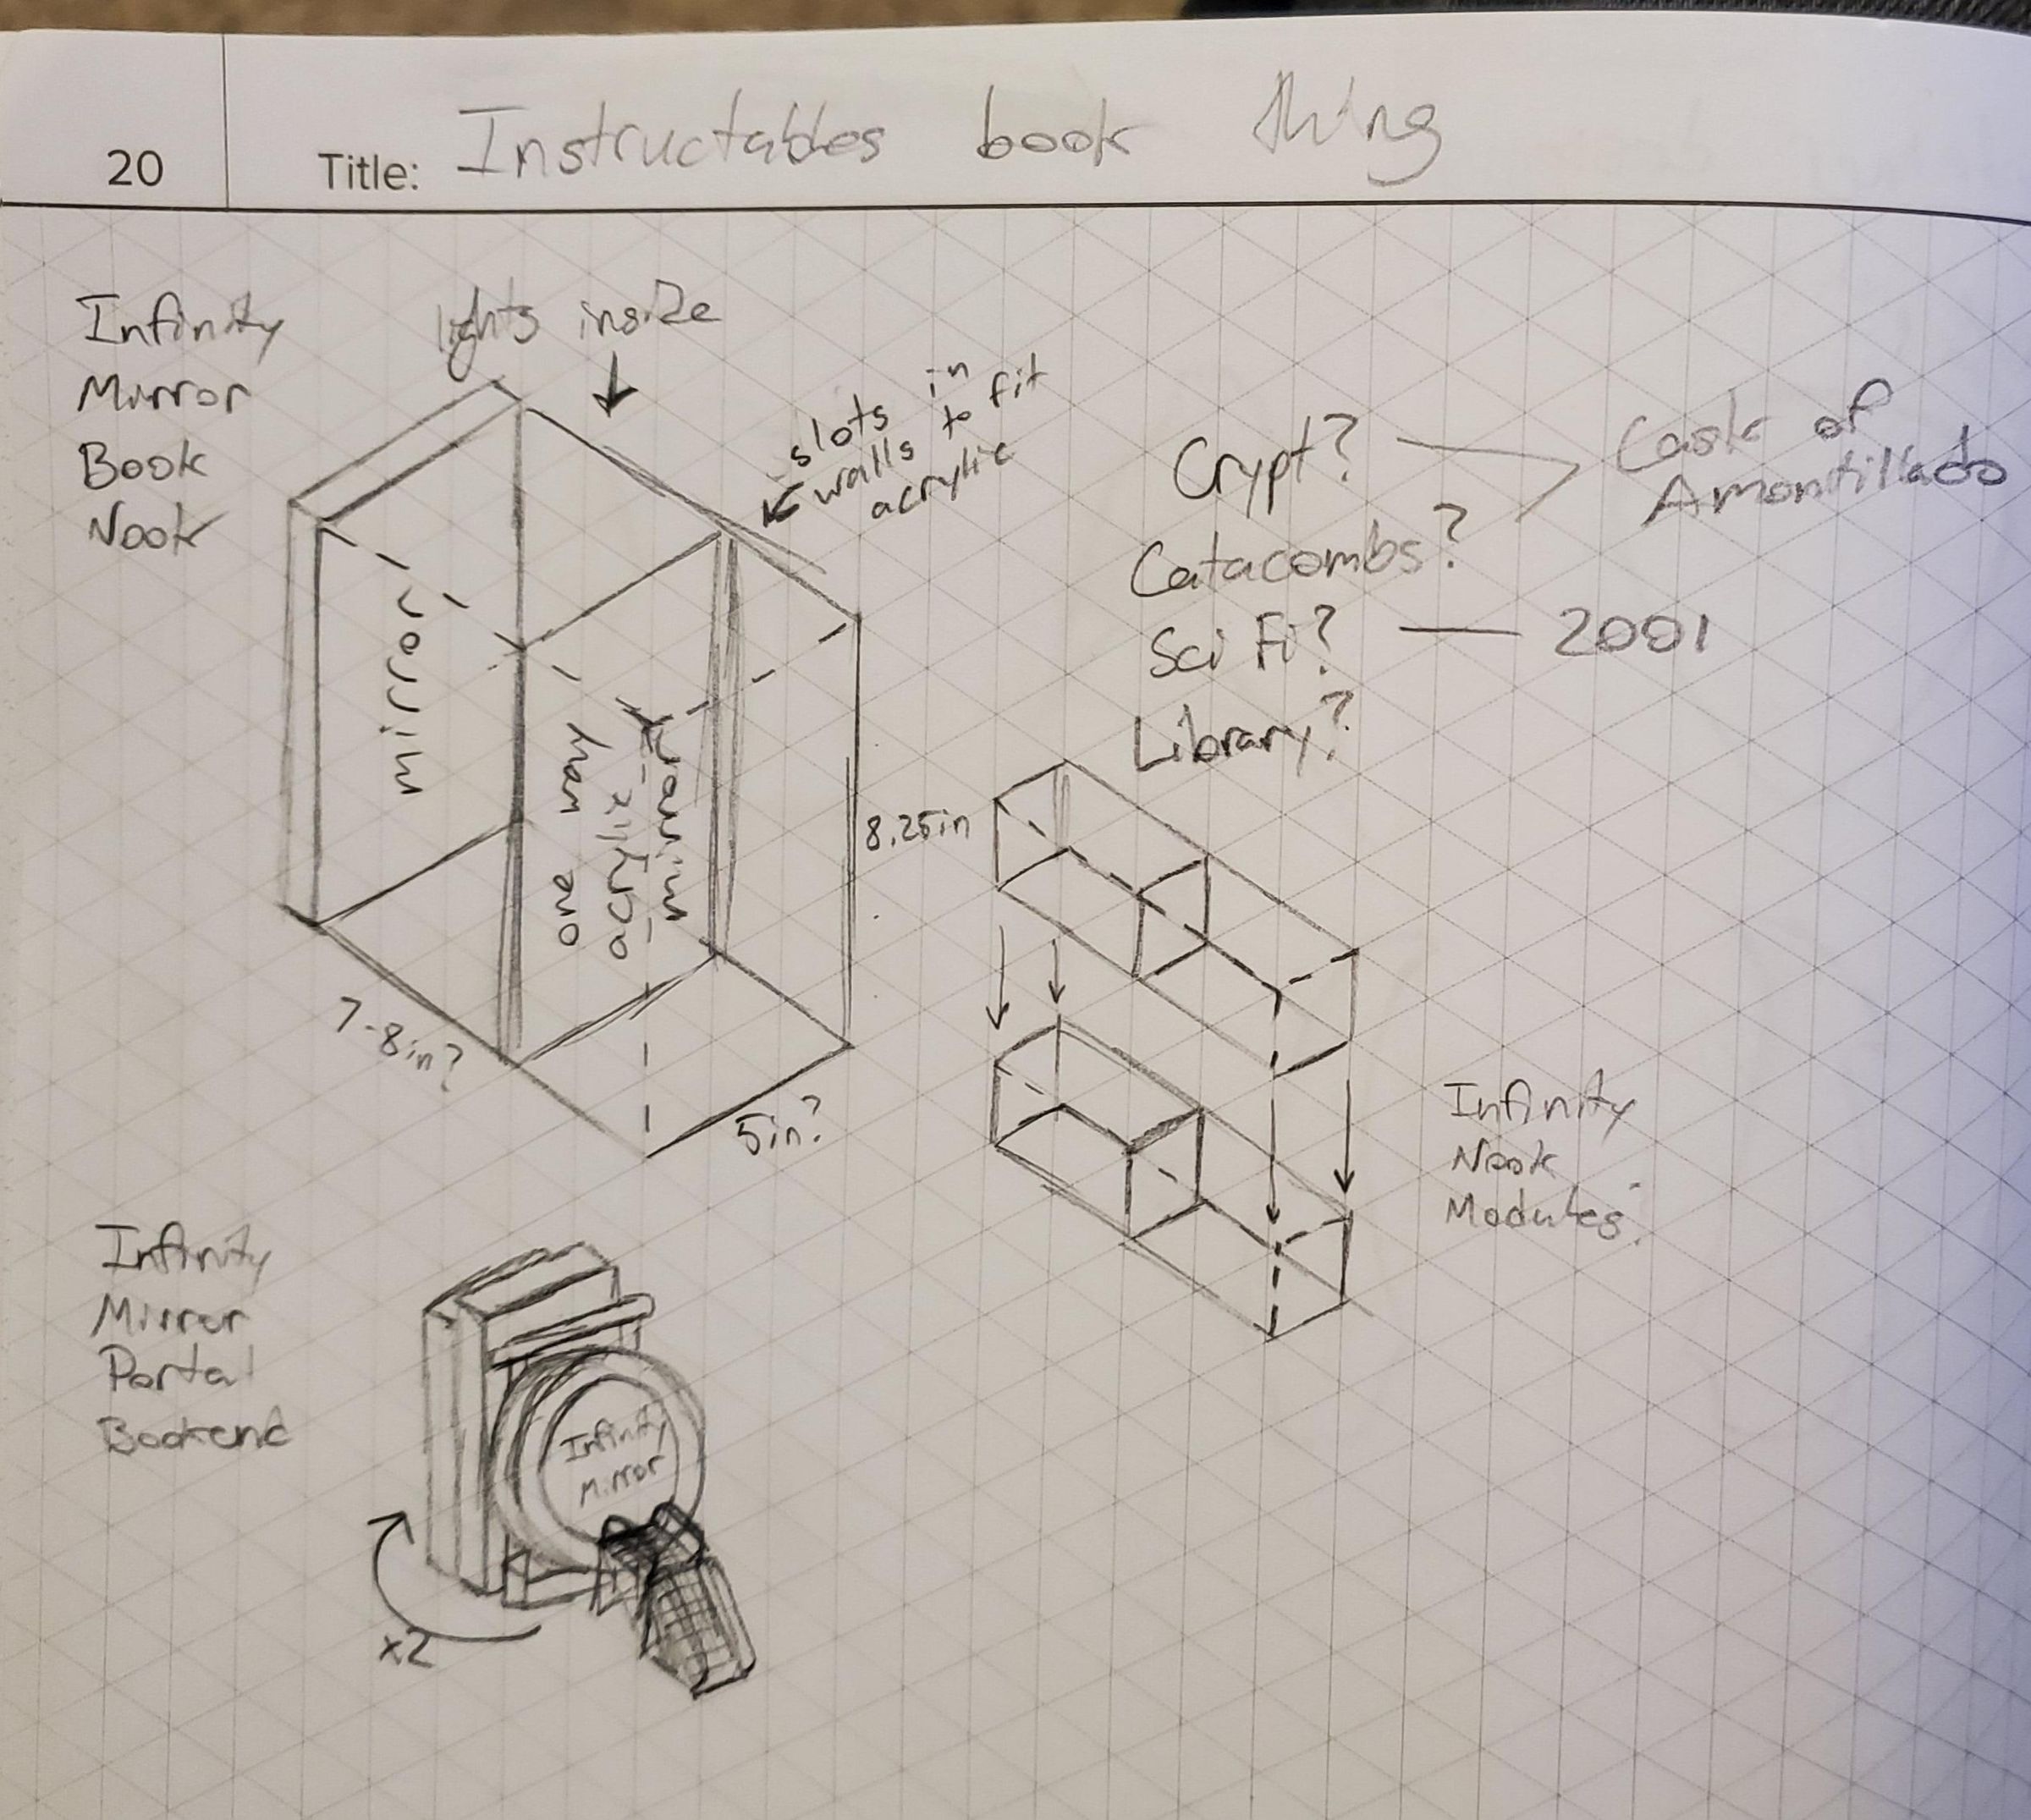 20
Title: Instructables book thing
Infinity
Mirror
Book
Nook
lights inside
slots in
walls to fit
acrylic
mirror
one way
acrylic
8.25in
7-8in?
5in?
Crypt?
Catacombs?
Sci Fi?
Library?
Cask of
Amontillado
2001
Infinity
Nook
Modules?
Infinity
Mirror
Portal
Bookend
Infinity
Mirror
x2